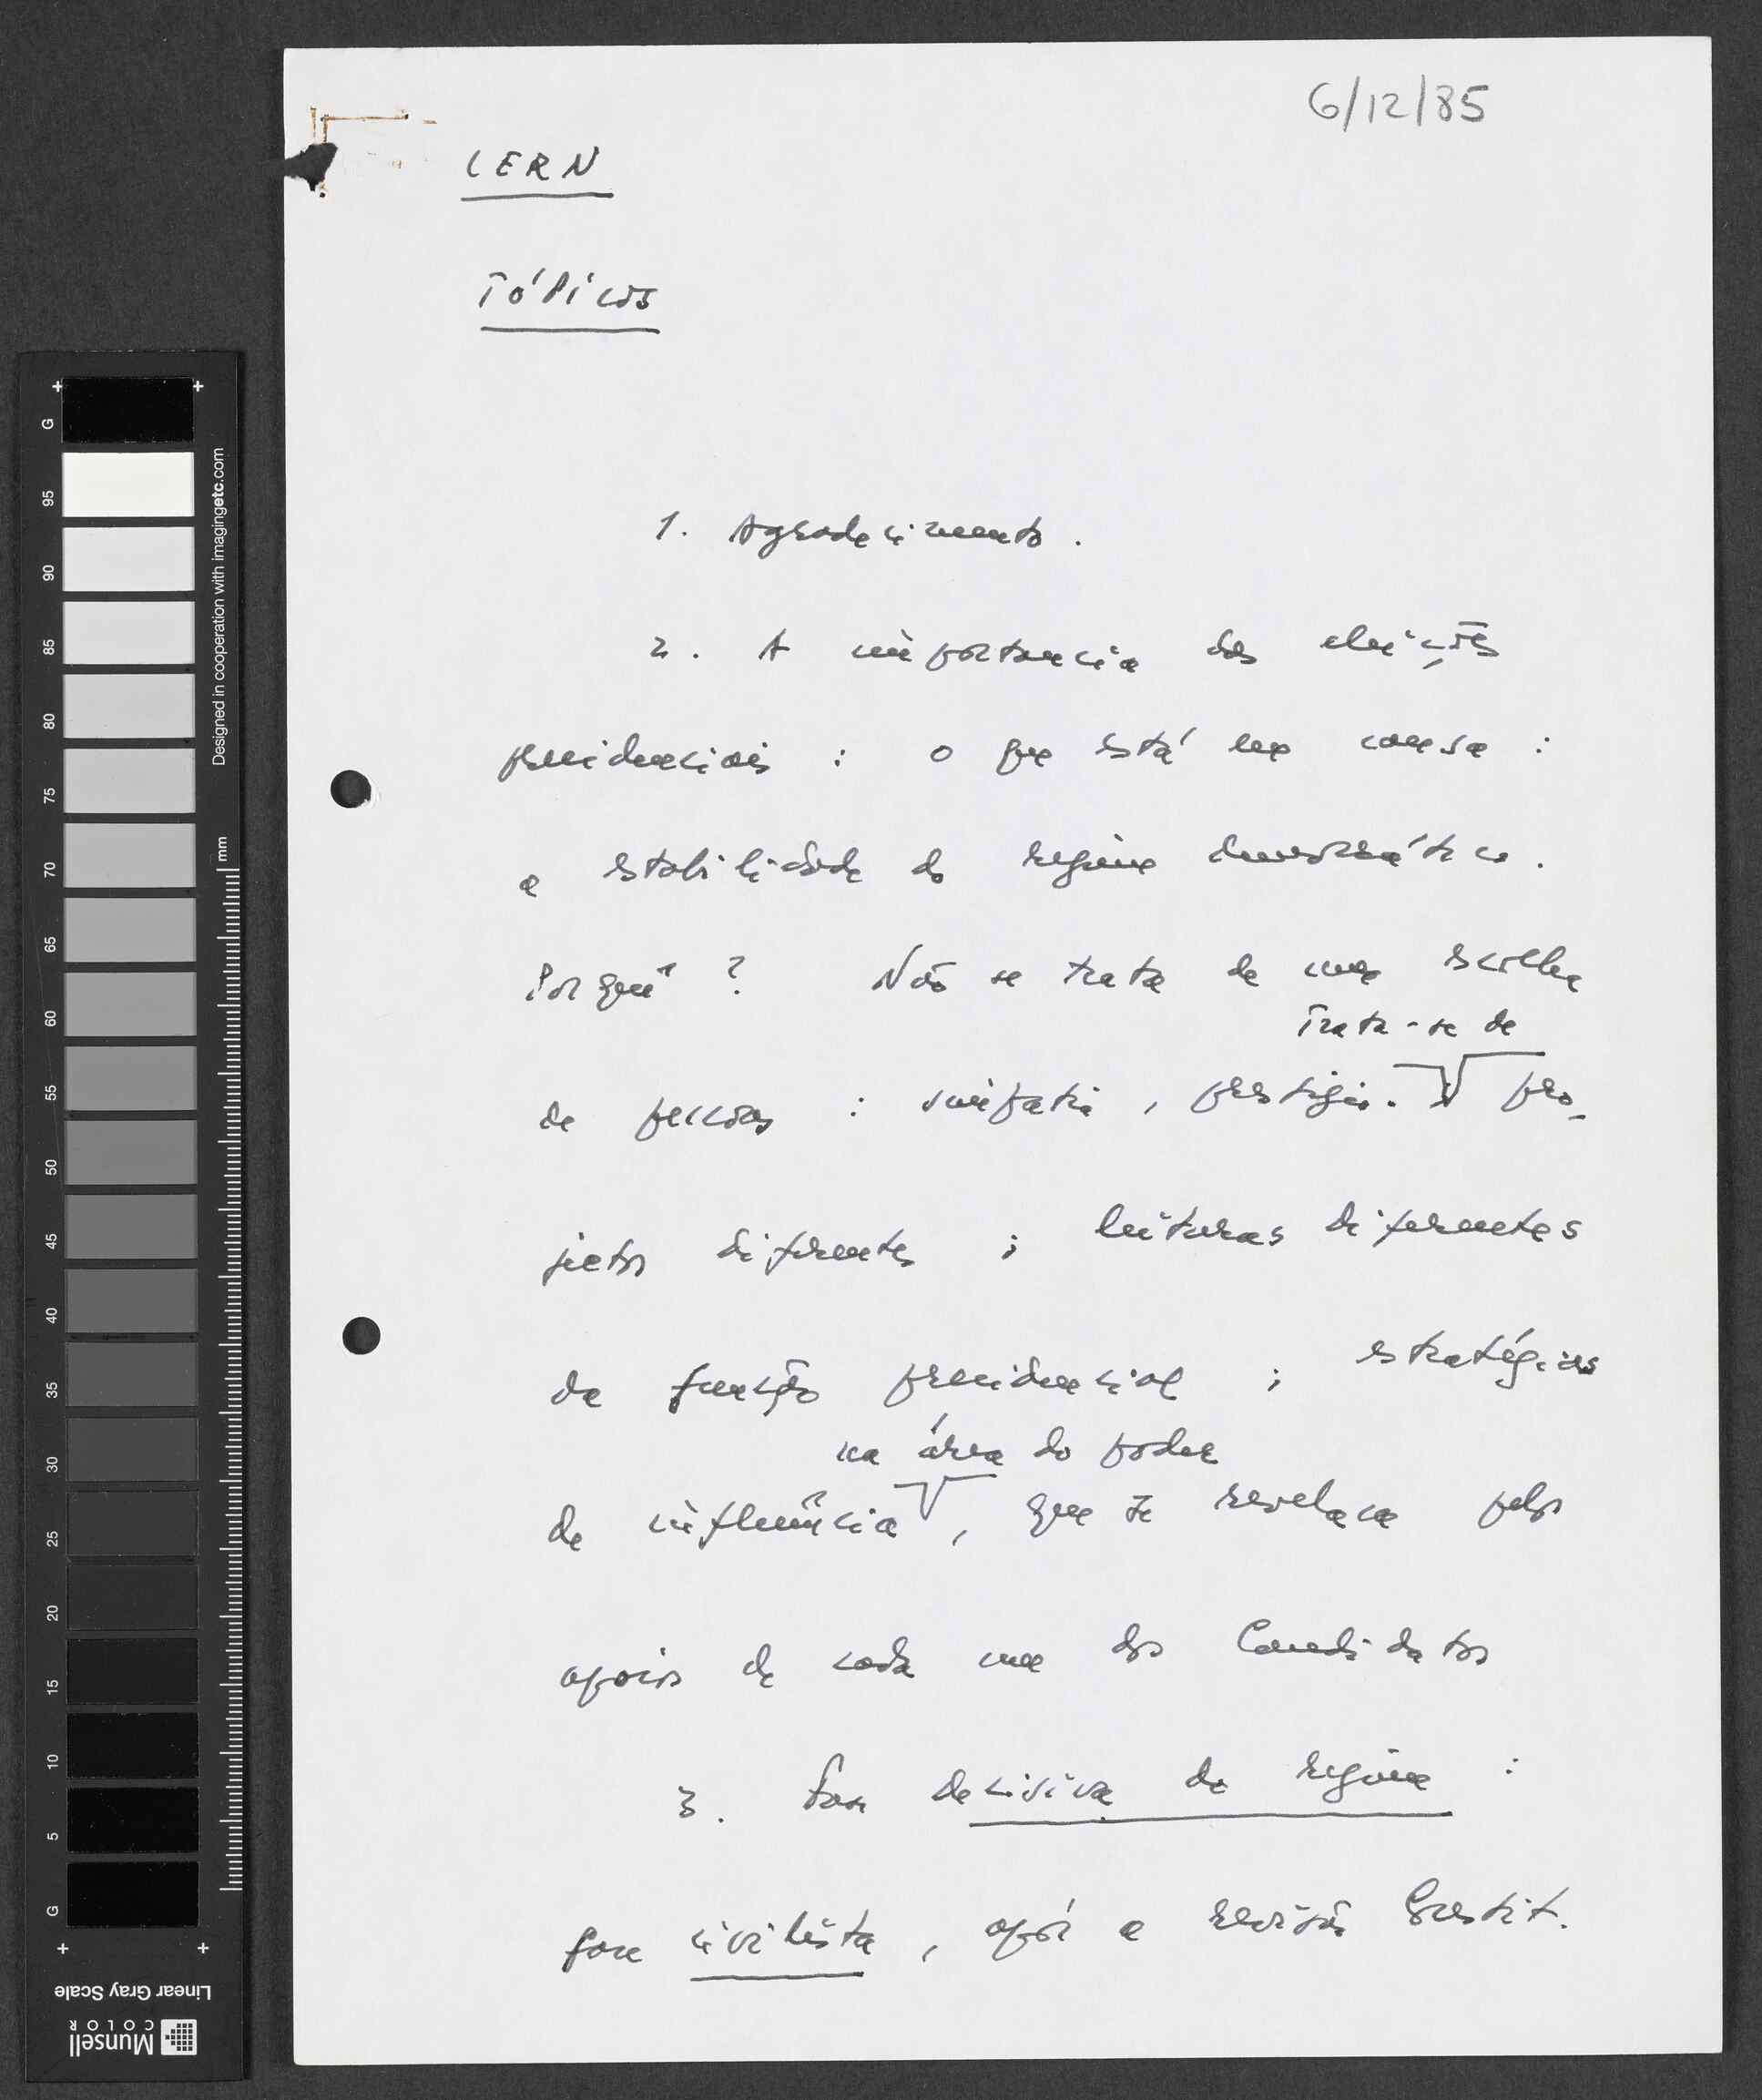 6/12/85
CERN
TÓPICOS
1. Agradecimento.
2. A importancia das eleições
presidenciais : o que está em causa :
a estabilidade do regime democrático.
Porquê ? Não se trata de uma escolha
Trata-se de
de pessoas : simpatia, prestígio. pro-
jectos diferentes ; leituras diferentes
da função presidencial ; estratégias
na área do poder
de influência, que se revelam pelos
apoios de cada um dos Candidatos
3. Fase decisiva do regime :
fase civilista, após a revisão Constit.
G 95 90 85 80 75 70 65 60 55 50 45 40 35 30 25 20 15 10 5 G
mm
Designed in cooperation with imagingetc.com
Linear Gray Scale
Munsell
COLOR